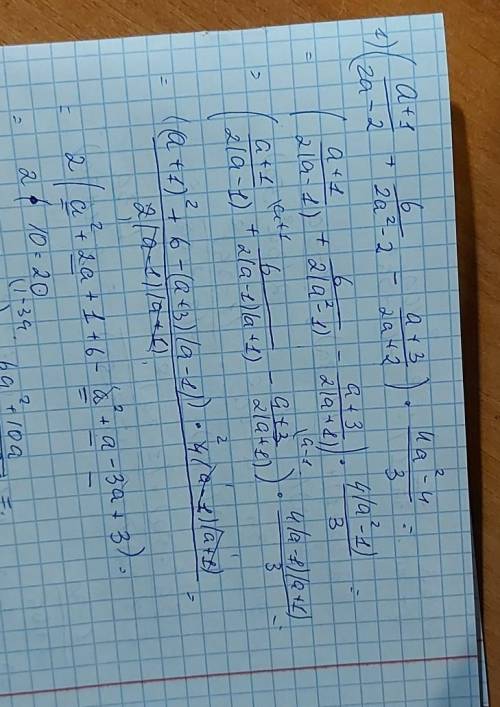 1) ( (a+1)/(2a-2) + 6/(2a²-2) - (a+3)/(2a+2) ) · (4a²-4)/3 =
= ( (a+1)/(2(a-1)) + 6/(2(a²-1)) - (a+3)/(2(a+1)) ) · 4(a²-1)/3 =
= ( (a+1)/(2(a-1)) \a+1 + 6/(2(a-1)(a+1)) - (a+3)/(2(a+1)) \a-1 ) · 4(a-1)(a+1)/3 =
= ((a+1)² + 6 - (a+3)(a-1)) · 4(a-1)(a+1) / 2(a-1)(a+1) =
= 2(a² + 2a + 1 + 6 - (a² + a - 3a + 3) =
= 2 · 10 = 20
4a² + 10a =